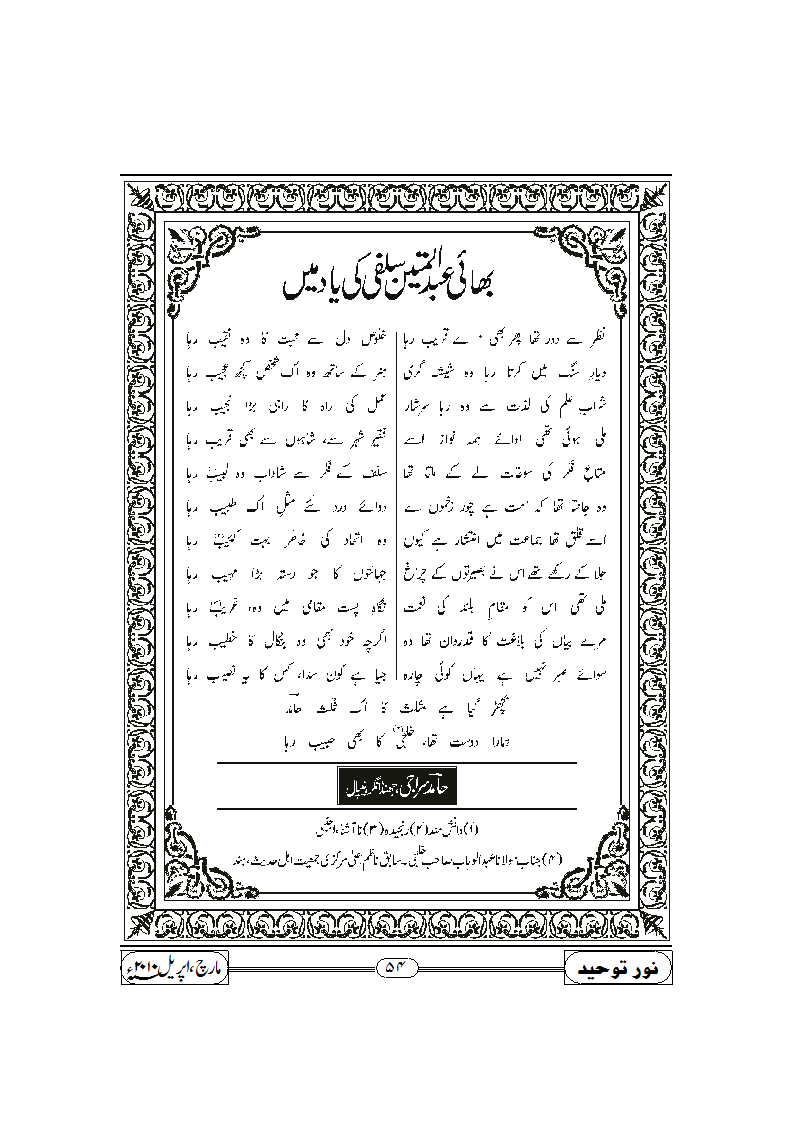 بھائی عبدالمتین سلفی کی یاد میں
نظر سے دور تھا پھر بھی مرے قریب رہا خلوصِ دل سے محبت کا وہ نقیب رہا
دیارِ سنگ میں کرتا رہا وہ شیشہ گری ہنر کے ساتھ وہ اک شخص کچھ عجیب رہا
شرابِ علم کی لذت سے وہ رہا سرشار عمل کی راہ کا راہی بڑا نجیب رہا
ملی ہوئی تھی ادائے ہمہ نواز اسے فقیرِ شہر سے، شاہوں سے بھی قریب رہا
متاعِ فکر کی سوغات لے کے ملتا تھا سلف کے فکر سے شاداب وہ لبیب رہا
وہ جانتا تھا کہ امت ہے چور زخموں سے دوائے درد لئے مثلِ اک طبیب رہا
اسے قلق تھا جماعت میں انتشار ہے کیوں وہ اتحاد کی خاطر بہت کئیب رہا
جلا کے رکھے تھے اس نے بصیرتوں کے چراغ جہالتوں کا جو رستہ بڑا مہیب رہا
ملی تھی اس کو مقامِ بلند کی نعمت نگاہِ پست مقامی میں وہ، غریب رہا
مرے بیاں کی بلاغت کا قدرداں تھا وہ اگرچہ خود بھی وہ بنگال کا خطیب رہا
سوائے صبر نہیں ہے یہاں کوئی چارہ جیا ہے کون سدا، کس کا یہ نصیب رہا
بچھڑ گیا ہے مثلث کا اک ثلث حامد
ہمارا دوست تھا، خلجی(۴) کا بھی حبیب رہا
حامد سراجی، جھنڈانگر نیپال
(۱) دانش مند (۲) رنجیدہ (۳) ناآشنا، اجنبی
(۴) جناب مولانا عبدالوہاب صاحب خلجی۔ سابق ناظم اعلیٰ مرکزی جمعیت اہل حدیث، ہند
مارچ، اپریل ۲۰۱۰ء
۵۴
نور توحید